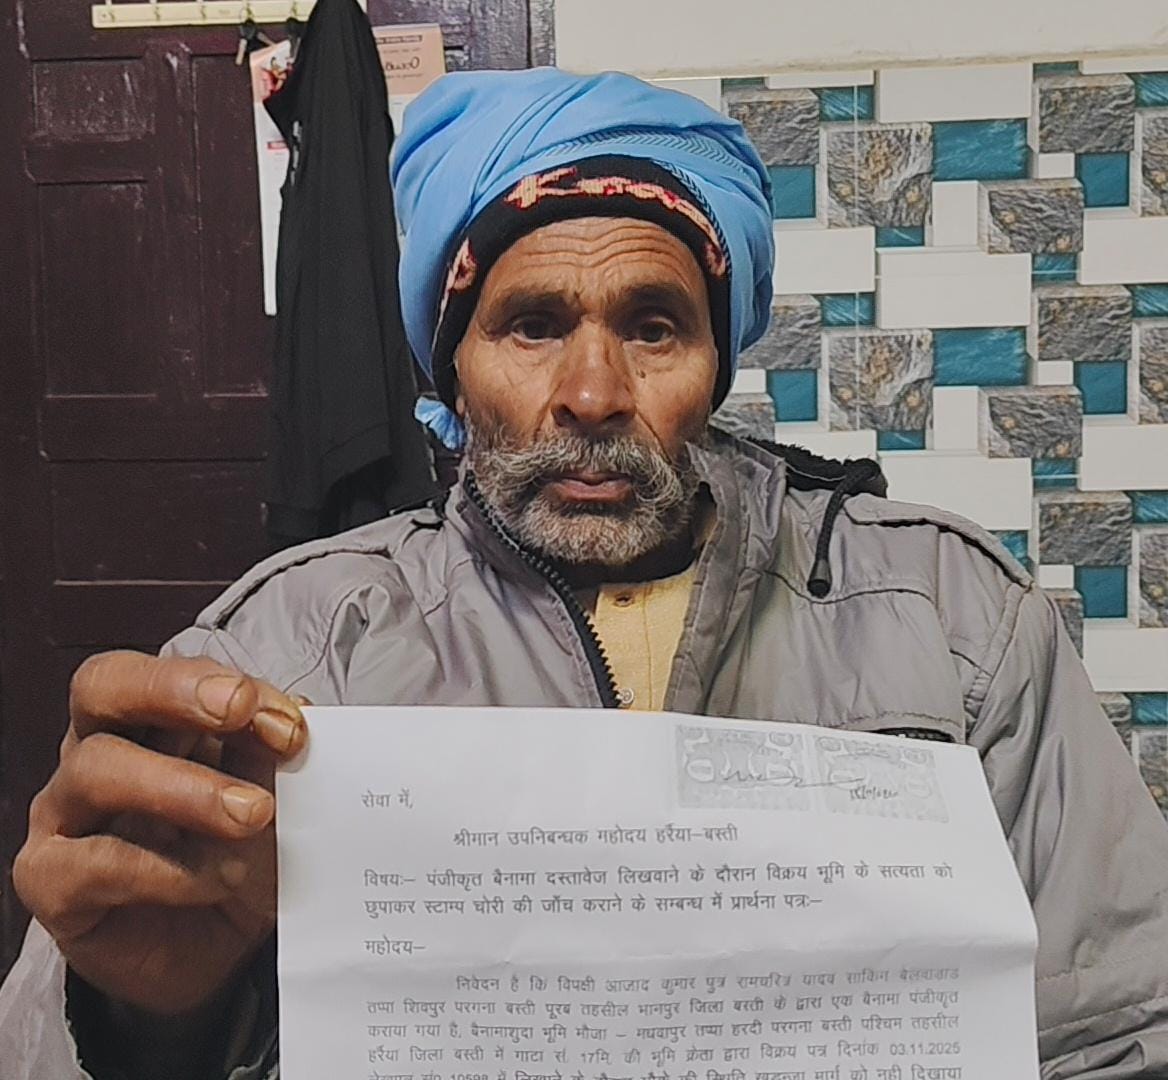 सेवा में,
श्रीमान उपनिबन्धक महोदय हर्रैया–बस्ती
विषयः– पंजीकृत बैनामा दस्तावेज लिखवाने के दौरान विक्रय भूमि के सत्यता को
छुपाकर स्टाम्प चोरी की जाँच कराने के सम्बन्ध में प्रार्थना पत्रः–
महोदय–
निवेदन है कि विपक्षी आजाद कुमार पुत्र रामचरित्र यादव साकिन बेलवाडाड
तप्पा शिवपुर परगना बस्ती पूरब तहसील भानपुर जिला बस्ती के द्वारा एक बैनामा पंजीकृत
कराया गया है, बैनामाशुदा भूमि मौजा – मधवापुर तप्पा हरदी परगना बस्ती पश्चिम तहसील
हर्रैया जिला बस्ती में गाटा सं. 17मि. की भूमि क्रेता द्वारा विक्रय पत्र दिनांक 03.11.2025
लेखपत्र सं0 10598 में लिखवाने के दौरान मौके की स्थिति खडन्जा मार्ग को नही दिखाया